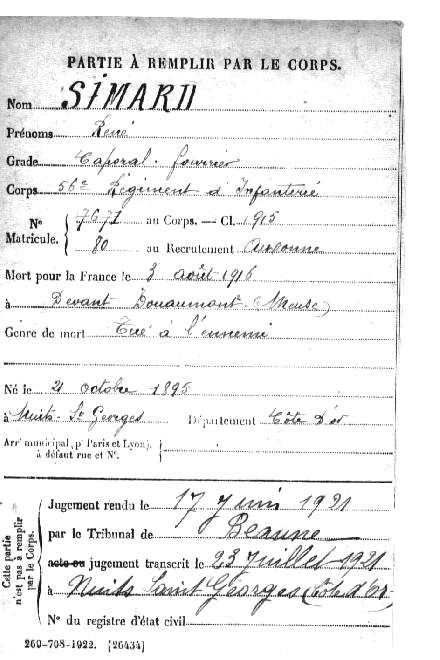 PARTIE À REMPLIR PAR LE CORPS.
Nom SIMARD
Prénoms René
Grade Caporal-fourrier
Corps 56e Régiment d'Infanterie
No Matricule. { 7671 au Corps. — Cl. 1915
80 au Recrutement Auxonne
Mort pour la France le 3 août 1916
à Devant Douaumont (Meuse)
Genre de mort Tué à l'ennemi
Né le 21 octobre 1895
à Nuits-St Georges Département Côte D'or
Arr' municipal (p' Paris et Lyon),
à défaut rue et No.
Cette partie n'est pas à remplir par le Corps.
Jugement rendu le 17 Juin 1921
par le Tribunal de Beaune
acte ou jugement transcrit le 23 Juillet 1921
à Nuits Saint Georges (Côte d'Or)
No du registre d'état civil
260-708-1922. [26434]